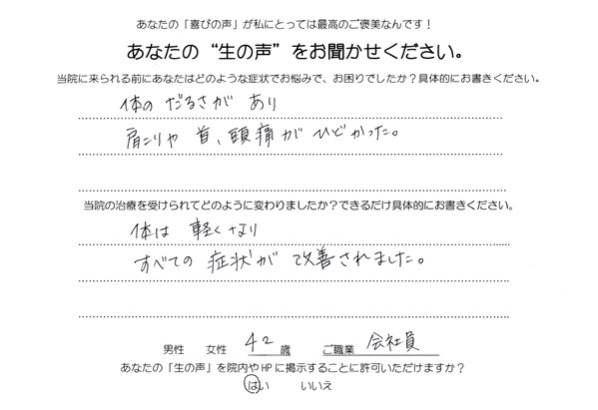 あなたの「喜びの声」が私にとっては最高のご褒美なんです！
あなたの“生の声”をお聞かせください。
当院に来られる前にあなたはどのような症状でお悩みで、お困りでしたか？具体的にお書きください。
体のだるさが あり
肩こりや 首、頭痛が ひどかった。
当院の治療を受けられてどのように変わりましたか？できるだけ具体的にお書きください。
体は 軽くなり
すべての 症状が 改善されました。
男性 女性 42 歳 ご職業 会社員
あなたの「生の声」を院内やHPに掲示することに許可いただけますか？
はい いいえ